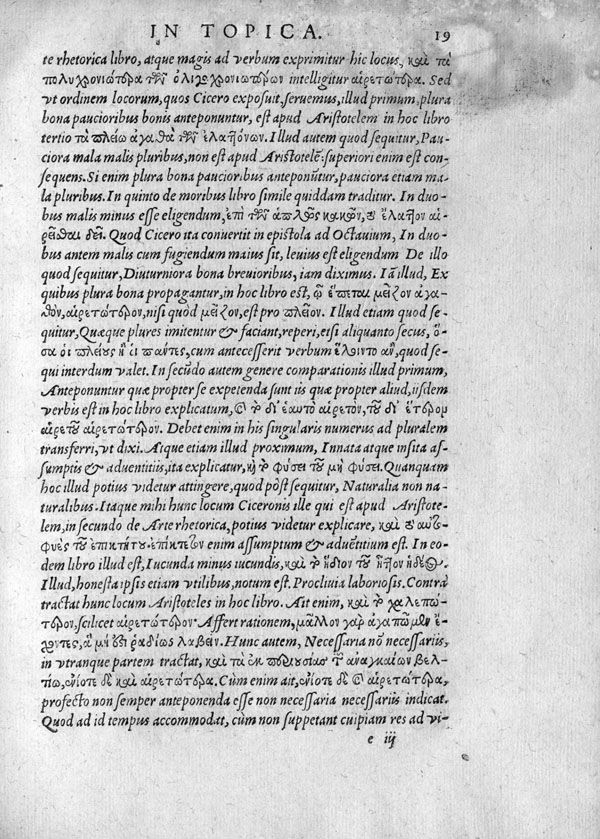 IN TOPICA. 19
te rhetorica libro, atque magis ad verbum exprimitur hic locus, καὶ τὰ
πολυχρονιώτερα τῶν ὀλιγοχρονιωτέρων intelligitur αἱρετώτερα. Sed
vt ordinem locorum, quos Cicero exposuit, seruemus, illud primum, plura
bona paucioribus bonis anteponuntur, est apud Aristotelem in hoc libro
tertio τὰ πλείω ἀγαθὰ τῶν ἐλαττόνων. Illud autem quod sequitur, Pau-
ciora mala malis pluribus, non est apud Aristotelē: superiori enim est con-
sequens. Si enim plura bona paucioribus anteponūtur, pauciora etiam ma-
la pluribus. In quinto de moribus libro simile quiddam traditur. In duo-
bus malis minus esse eligendum, ἐπὶ τῶν ἁπλῶς κακῶν, τὸ ἔλαττον αἱ-
ρεῖσθαι δεῖ. Quod Cicero ita conuertit in epistola ad Octauium, In duo-
bus antem malis cum fugiendum maius sit, leuius est eligendum De illo
quod sequitur, Diuturniora bona breuioribus, iam diximus. Iā illud, Ex
quibus plura bona propagantur, in hoc libro est, ᾧ ἕπεται μεῖζον ἀγα-
θὸν, αἱρετώτερον, nisi quod μεῖζον, est pro πλεῖον. Illud etiam quod se-
quitur, Quæque plures imitentur & faciant, reperi, etsi aliquanto secus, ὅ-
σα οἱ πλείους ἢ οἱ πάντες, cum antecesserit verbum ἕλοιντο ἂν, quod se-
qui interdum valet. In secūdo autem genere comparationis illud primum,
Anteponuntur quæ propter se expetenda sunt iis quæ propter aliud, iisdem
verbis est in hoc libro explicatum, καὶ τὸ δι' ἑαυτὸ αἱρετὸν, τοῦ δι' ἕτερον
αἱρετοῦ αἱρετώτερον. Debet enim in his singularis numerus ad pluralem
transferri, vt dixi. Atque etiam illud proximum, Innata atque insita as-
sumptis & aduentitiis, ita explicatur, καὶ τὸ φύσει τοῦ μὴ φύσει. Quanquam
hoc illud potius videtur attingere, quod pòst sequitur, Naturalia non na-
turalibus. Itaque mihi hunc locum Ciceronis ille qui est apud Aristote-
lem, in secundo de Arte rhetorica, potius videtur explicare, καὶ τὸ αὐτο-
φυὲς τοῦ ἐπικτήτου· ἐπίκτητον enim assumptum & aduētitium est. In eo-
dem libro illud est, Iucunda minus iucundis, καὶ τὸ ἥδιον τοῦ ἧττον ἡδέος.
Illud, honesta ipsis etiam vtilibus, notum est. Procliuia laboriosis. Contrà
tractat hunc locum Aristoteles in hoc libro. Ait enim, καὶ τὸ χαλεπώ-
τερον. scilicet αἱρετώτερον. Affert rationem, μᾶλλον γὰρ ἀγαπῶμεν ἔ-
χοντες, ἃ μή ἐστι ῥαδίως λαβεῖν. Hunc autem, Necessaria nō necessariis,
in vtranque partem tractat, καὶ τὰ ἐκ περιουσίας τῶν ἀναγκαίων βελ-
τίω, ἐνίοτε δὲ καὶ αἱρετώτερα. Cùm enim ait, ἐνίοτε δὲ καὶ αἱρετώτερα,
profecto non semper anteponenda esse non necessaria necessariis indicat.
Quod ad id tempus accommodat, cùm non suppetant cuipiam res ad vi-
e iij